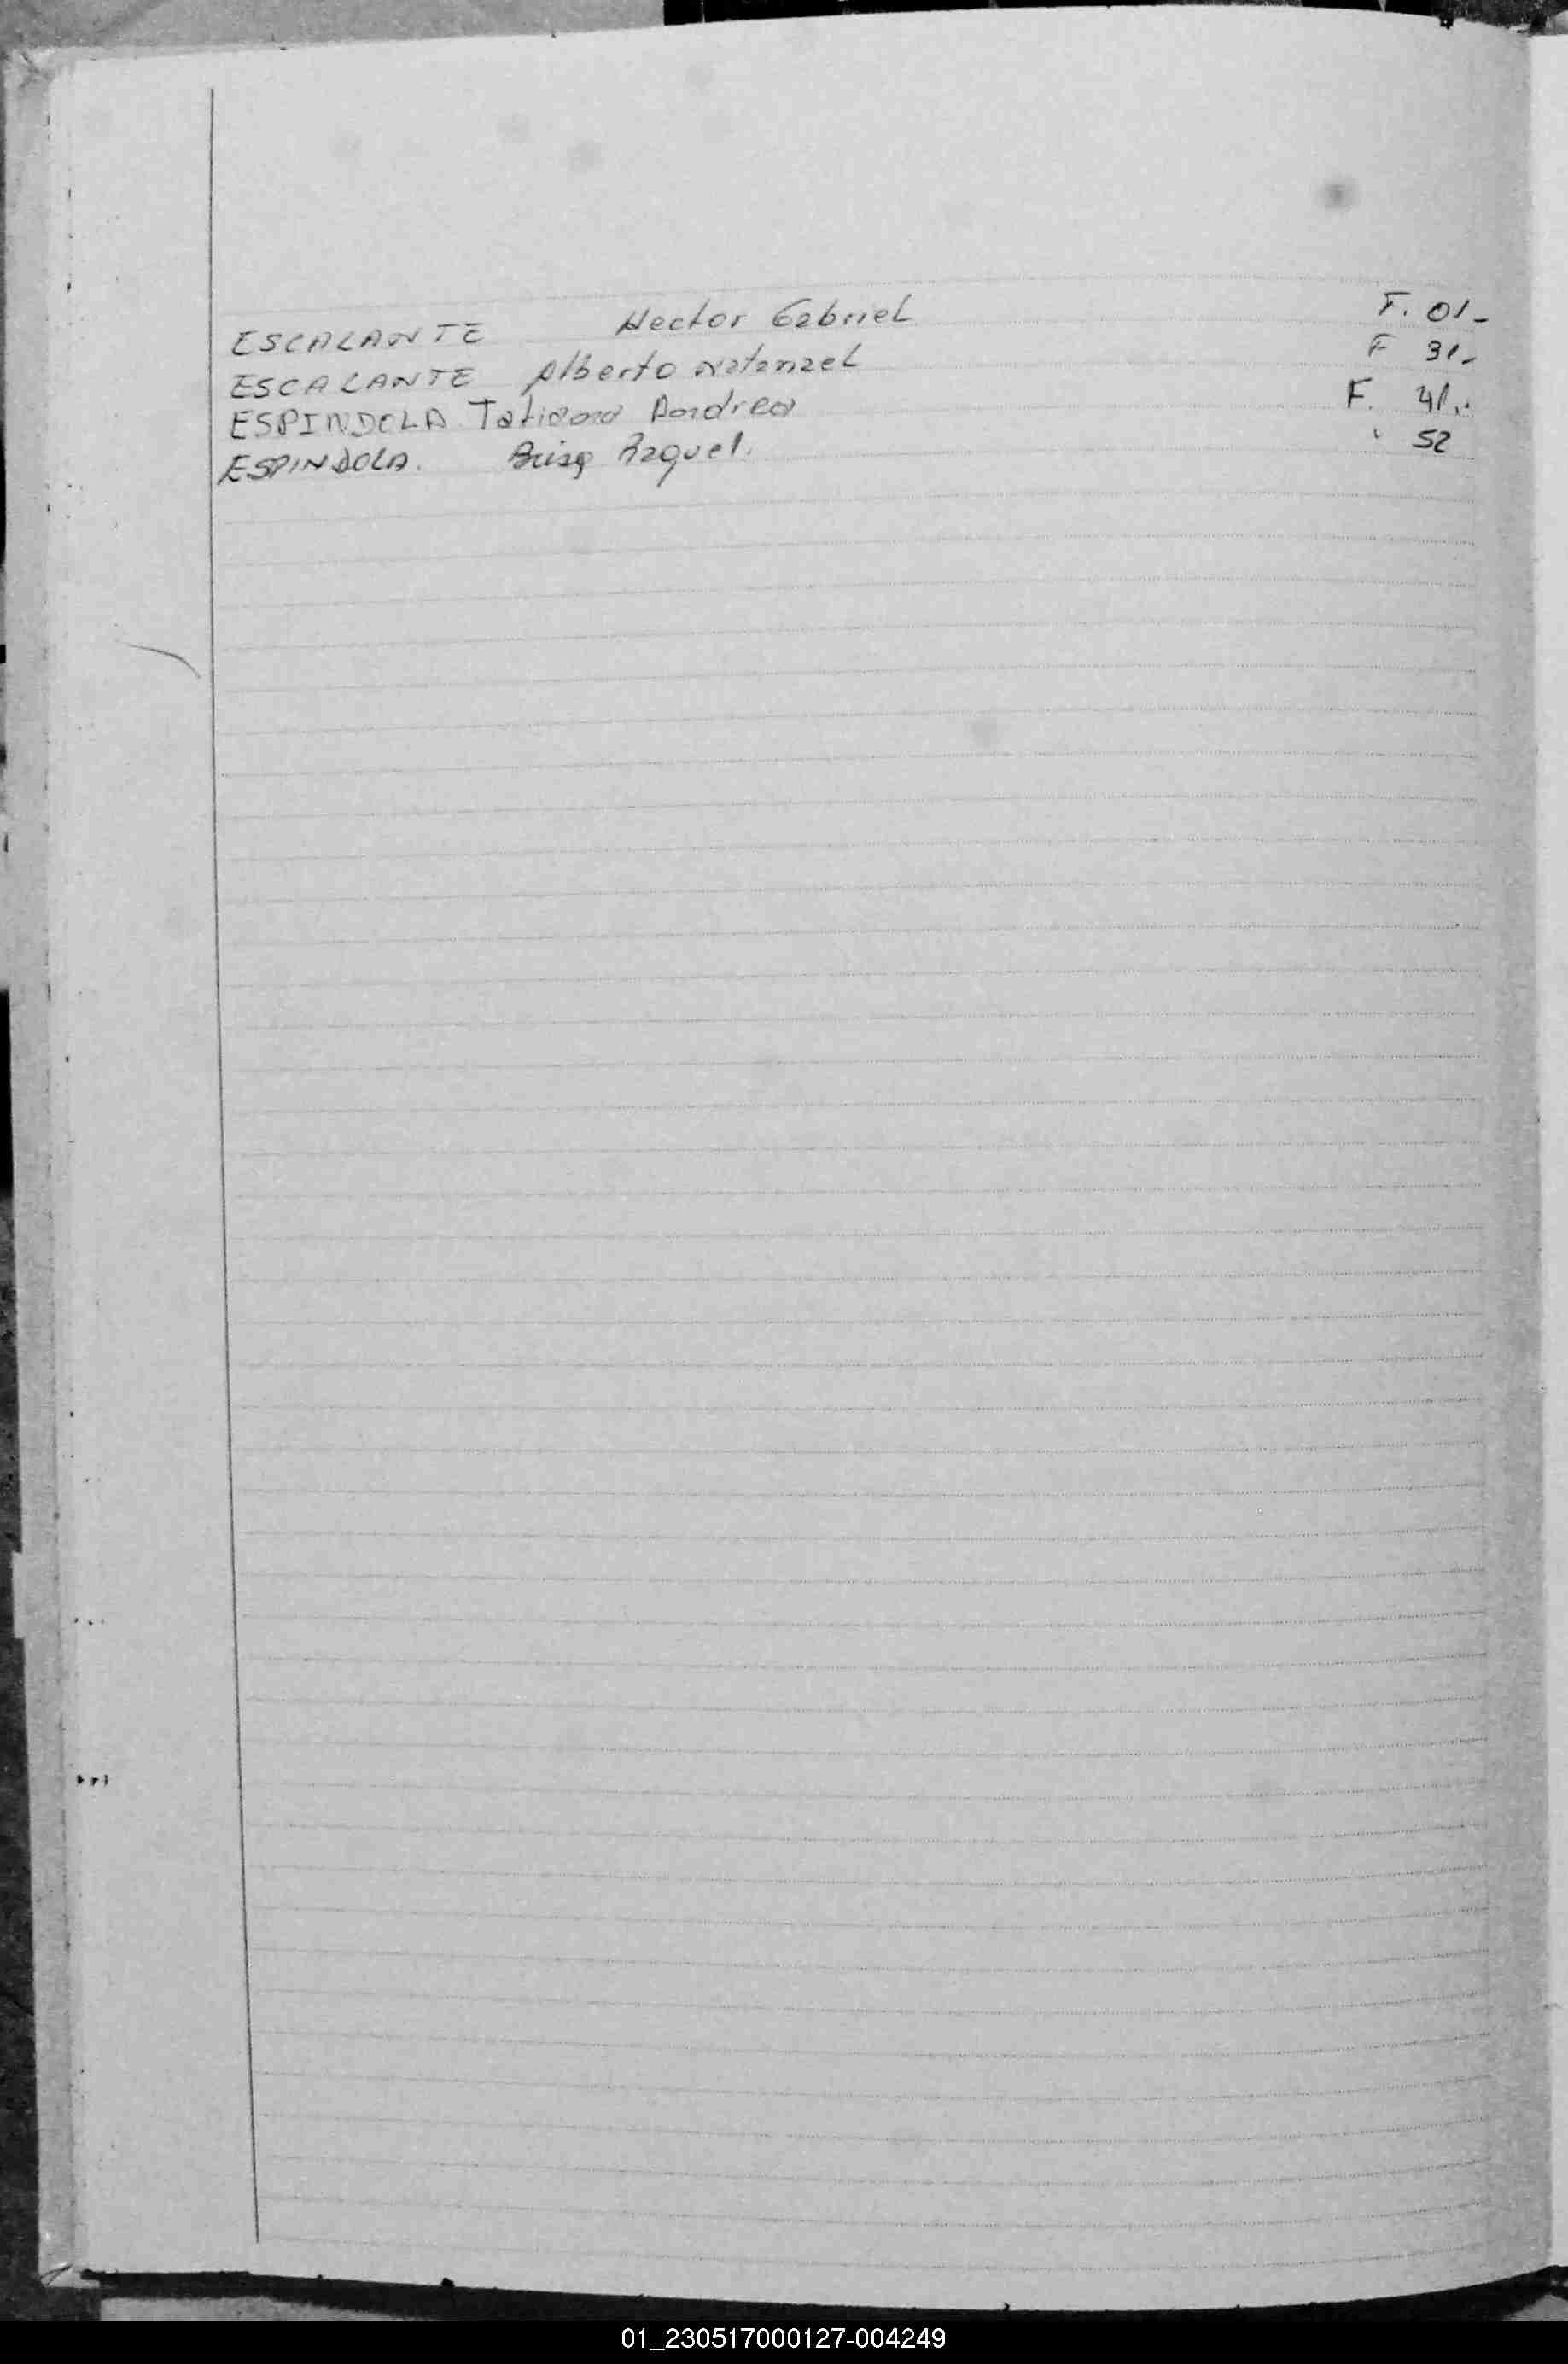 ESCALANTE Hector Gabriel F. 01-
ESCALANTE Alberto Natanael F 31-
ESPINDOLA Tatiana Andrea F. 41.
ESPINDOLA. Brisa Raquel. 52
01_230517000127-004249